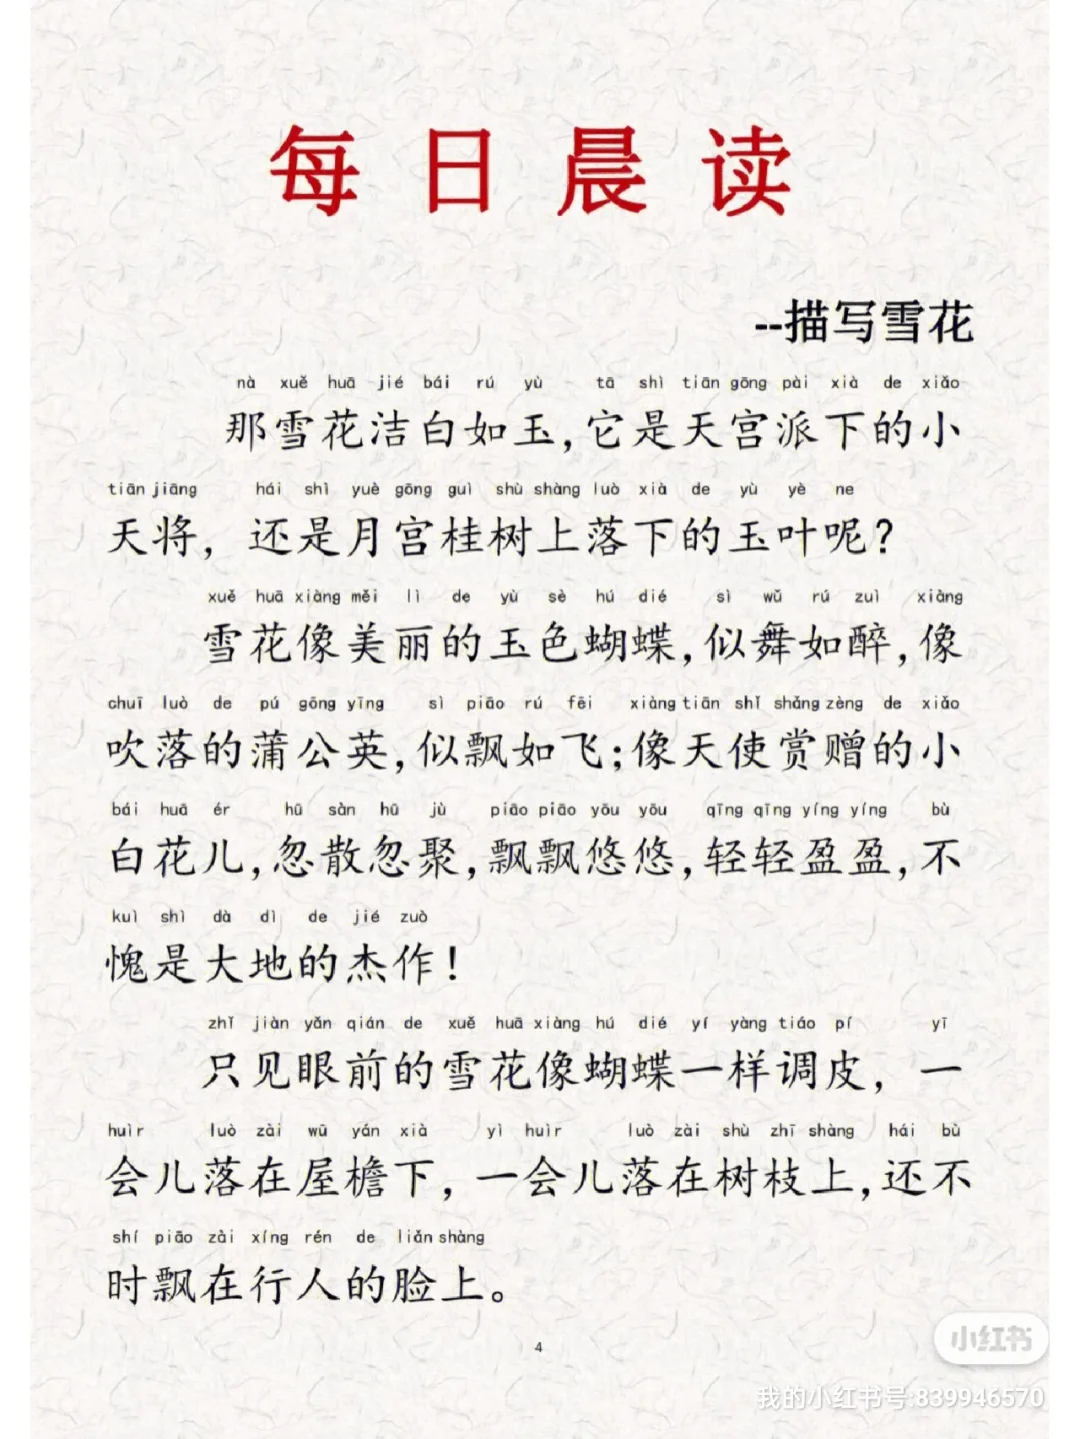 每日晨读
--描写雪花
nà xuě huā jié bái rú yù tā shì tiān gōng pài xià de xiǎo
那雪花洁白如玉,它是天宫派下的小
tiān jiāng hái shì yuè gōng guì shù shàng luò xià de yù yè ne
天将，还是月宫桂树上落下的玉叶呢?
xuě huā xiàng měi lì de yù sè hú dié sì wǔ rú zuì xiàng
雪花像美丽的玉色蝴蝶,似舞如醉,像
chuī luò de pú gōng yīng sì piāo rú fēi xiàng tiān shǐ shǎng zèng de xiǎo
吹落的蒲公英,似飘如飞;像天使赏赠的小
bái huā ér hū sàn hū jù piāo piāo yōu yōu qīng qīng yíng yíng bù
白花儿,忽散忽聚,飘飘悠悠,轻轻盈盈,不
kuì shì dà dì de jié zuò
愧是大地的杰作!
zhǐ jiàn yǎn qián de xuě huā xiàng hú dié yí yàng tiáo pí yī
只见眼前的雪花像蝴蝶一样调皮，一
huìr luò zài wū yán xià yì huìr luò zài shù zhī shàng hái bù
会儿落在屋檐下，一会儿落在树枝上,还不
shí piāo zài xíng rén de liǎn shàng
时飘在行人的脸上。
4
小红书
我的小红书号:839946570